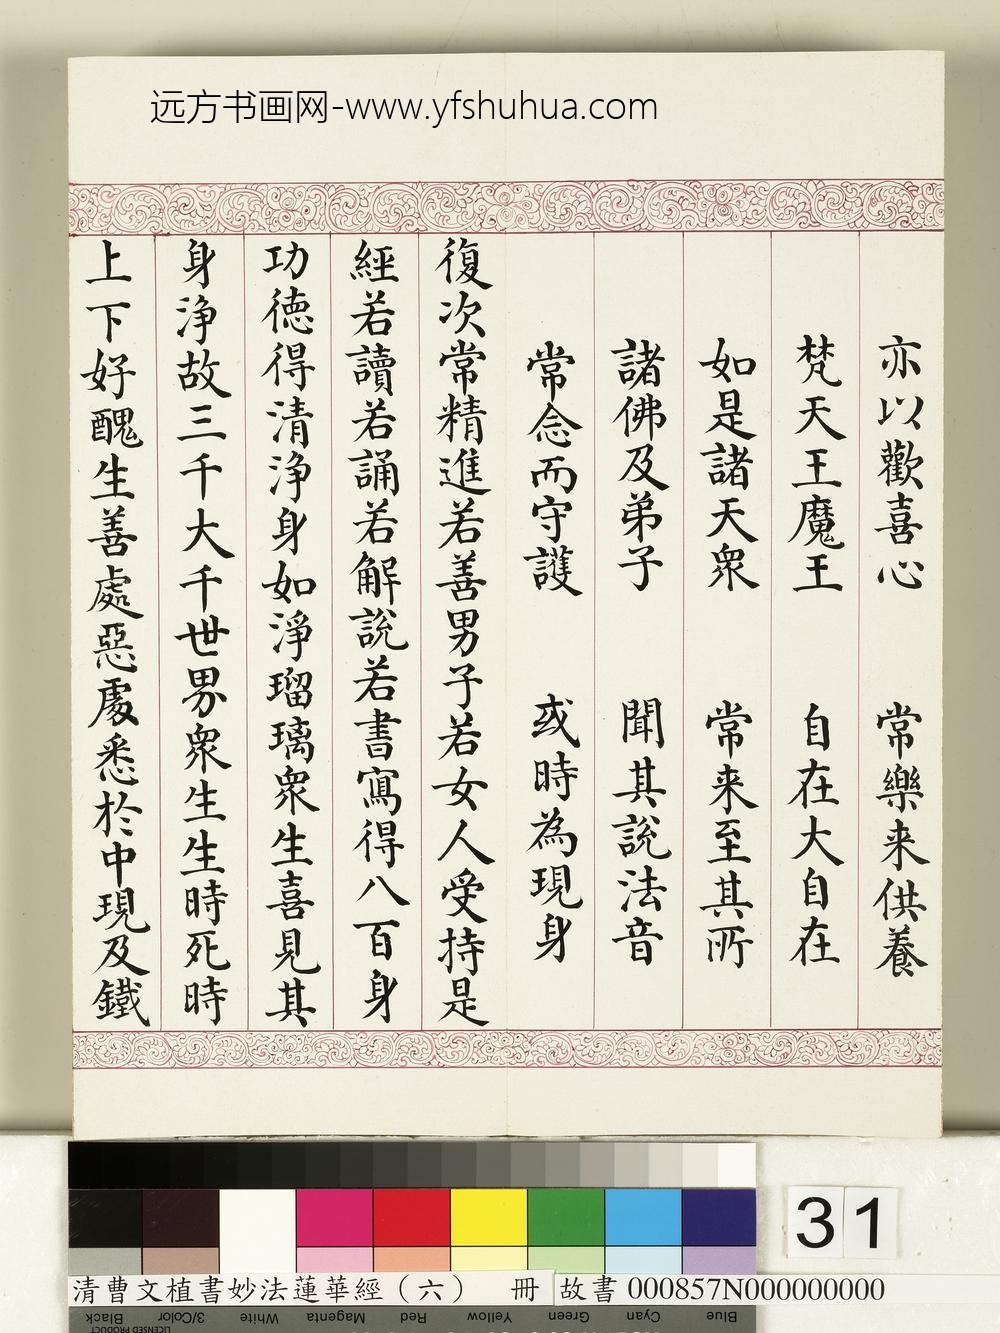 远方书画网-www.yfshuhua.com
亦以歡喜心 常樂来供養
梵天王魔王 自在大自在
如是諸天衆 常来至其所
諸佛及弟子 聞其說法音
常念而守護 或時為現身
復次常精進若善男子若女人受持是
經若讀若誦若解說若書寫得八百身
功德得清淨身如淨瑠璃衆生喜見其
身淨故三千大千世界衆生生時死時
上下好醜生善處惡處悉於中現及鐵
31
清曹文植書妙法蓮華經（六） 冊 故書 000857N000000000
Black 3/Color White Magenta Red Yellow Green Cyan Blue
LICENSED PRODUCT